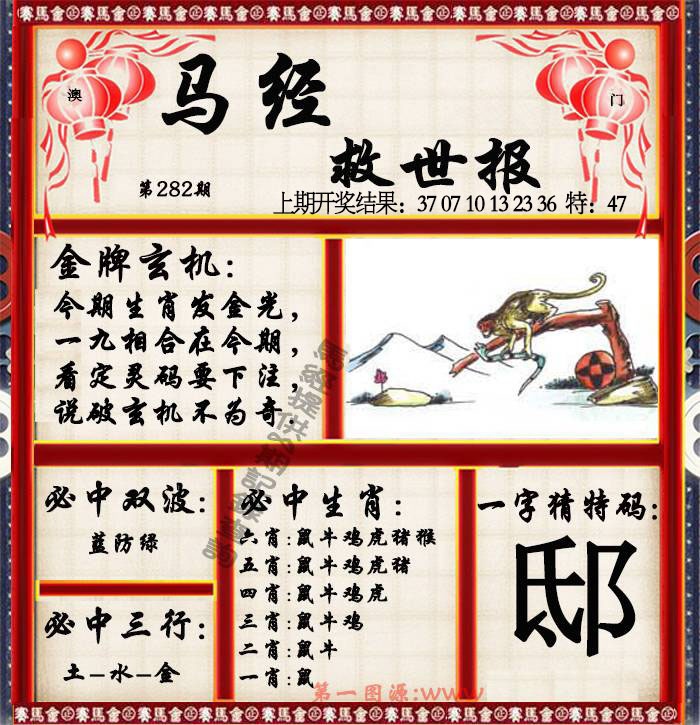 賽馬會正 賽馬會正 賽馬會正 賽馬會正 賽馬會正 賽馬會正 賽馬會正 賽馬會正
澳
门
马经
救世报
第282期
上期开奖结果：37 07 10 13 23 36 特：47
金牌玄机：
今期生肖发金光，
一九相合在今期，
看定灵码要下注，
说破玄机不为奇.
必中双波：
蓝防绿
必中三行：
土-水-金
必中生肖：
六肖:鼠牛鸡虎猪猴
五肖:鼠牛鸡虎猪
四肖:鼠牛鸡虎
三肖:鼠牛鸡
二肖:鼠牛
一肖:鼠
一字猜特码:
邸
第一图源:www